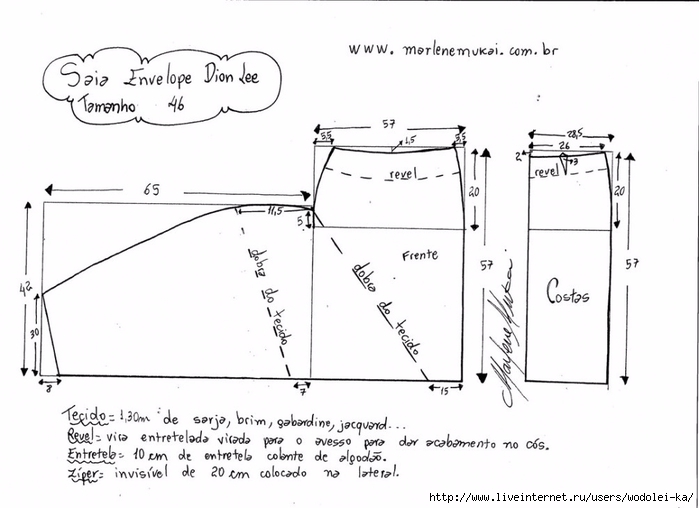 www.marlenemukai.com.br
Saia Envelope Dion Lee
Tamanho 46
57
5,5
1,5
3,5
revel
20
65
11,5
5
42
30
8
7
15
dobra do tecido
dobra do tecido
Frente
57
Marlene Mukai
28,5
26
2
3
revel
20
57
Costas
Tecido = 1,30m de sarja, brim, gabardine, jacquard...
Revel = vira entretelada virada para o avesso para dar acabamento no cós.
Entretela = 10 cm de entretela colante de algodão.
Zíper = invisível de 20 cm colocado na lateral.
http://www.liveinternet.ru/users/wodolei-ka/